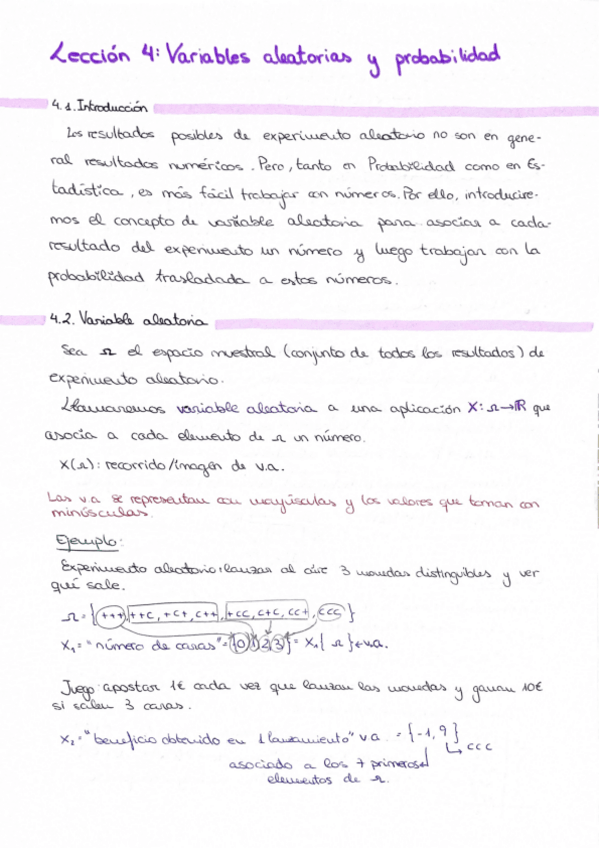 Lección 4: Variables aleatorias y probabilidad
4.1. Introducción
Los resultados posibles de experimento aleatorio no son en gene-
ral resultados numéricos. Pero, tanto en Probabilidad como en Es-
tadística, es más fácil trabajar con números. Por ello, introducire-
mos el concepto de variable aleatoria para asociar a cada
resultado del experimento un número y luego trabajar con la
probabilidad trasladada a estos números.
4.2. Variable aleatoria
Sea Ω el espacio muestral (conjunto de todos los resultados) de
experimento aleatorio.
Llamaremos variable aleatoria a una aplicación X: Ω→ℝ que
asocia a cada elemento de Ω un número.
X(Ω): recorrido/imagen de v.a.
Las v.a se representan con mayúsculas y los valores que toman con
minúsculas.
Ejemplo:
Experimento aleatorio: lanzar al aire 3 monedas distinguibles y ver
qué sale.
Ω = {+++, ++c, +c+, c++, +cc, c+c, cc+, ccc}
X₁ = "número de caras" = {0,1,2,3} = X₁{Ω} ← v.a.
Juego: apostar 1€ cada vez que lanzan las monedas y ganan 10€
si salen 3 caras.
X₂ = "beneficio obtenido en 1 lanzamiento" v a = {-1, 9}
ccc
asociado a los 7 primeros
elementos de Ω.